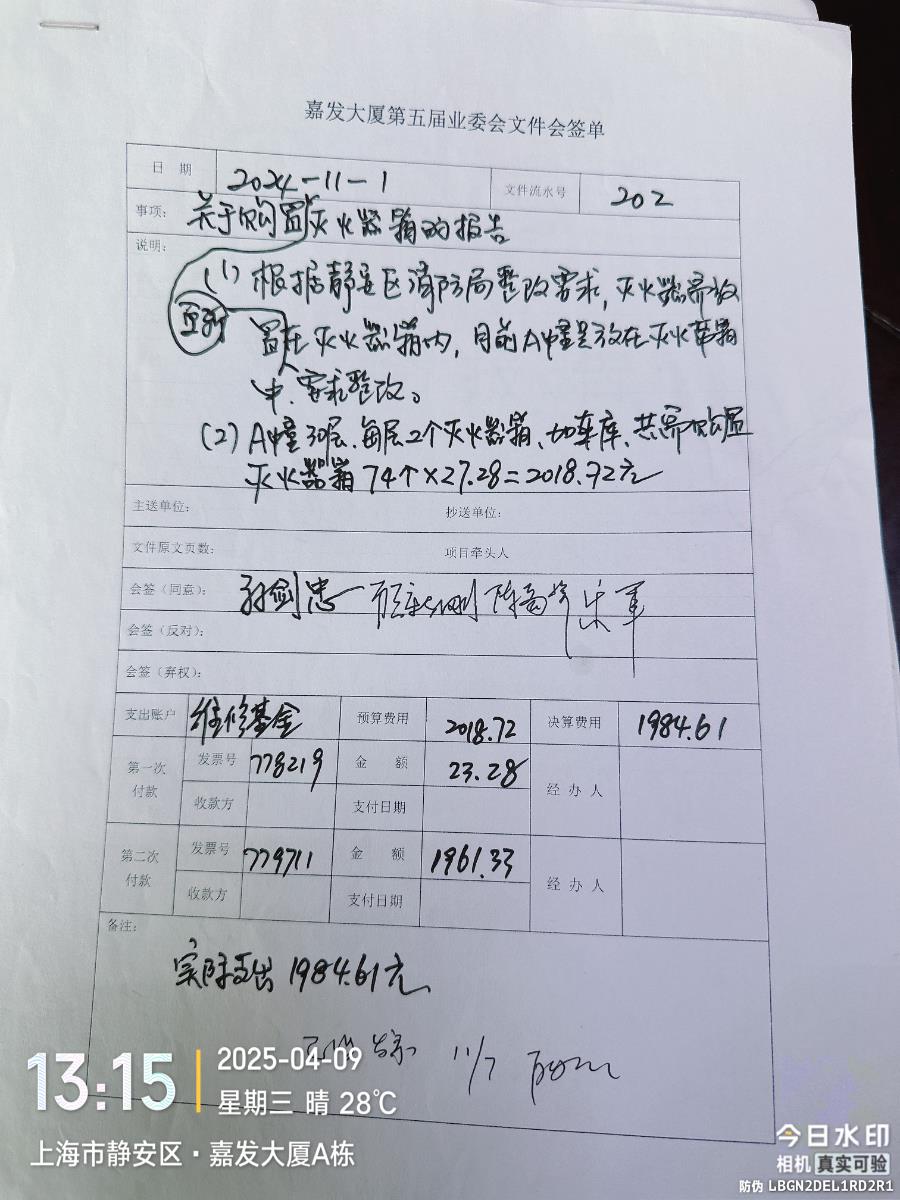 嘉发大厦第五届业委会文件会签单
日 期 2024-11-1 文件流水号 202
事项: 关于购置灭火器箱的报告
说明:
(1) 根据静安区消防局整改要求,灭火器需放
置在灭火器箱内,目前A幢是放在灭火带箱
中、要求整改。
(2) A幢30层、每层2个灭火器箱、加车库、共需购置
灭火器箱74个×27.28=2018.72元
主送单位: 抄送单位:
文件原文页数: 项目牵头人
会签(同意): 孙剑忠
会签(反对):
会签(弃权):
支出账户 维修基金 预算费用 2018.72 决算费用 1984.61
第一次付款 发票号 778219 金 额 23.28 经 办 人
收款方 支付日期
第二次付款 发票号 779711 金 额 1961.33 经 办 人
收款方 支付日期
备注:
实际支出1984.61元
11/7
13:15 2025-04-09
星期三 晴 28℃
上海市静安区·嘉发大厦A栋
今日水印
相机 真实可验
防伪 LBGN2DEL1RD2R1